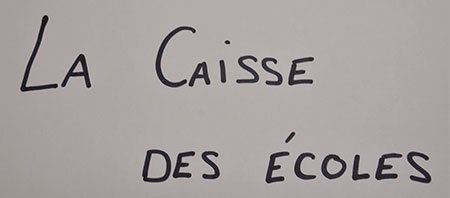 La Caisse
des écoles